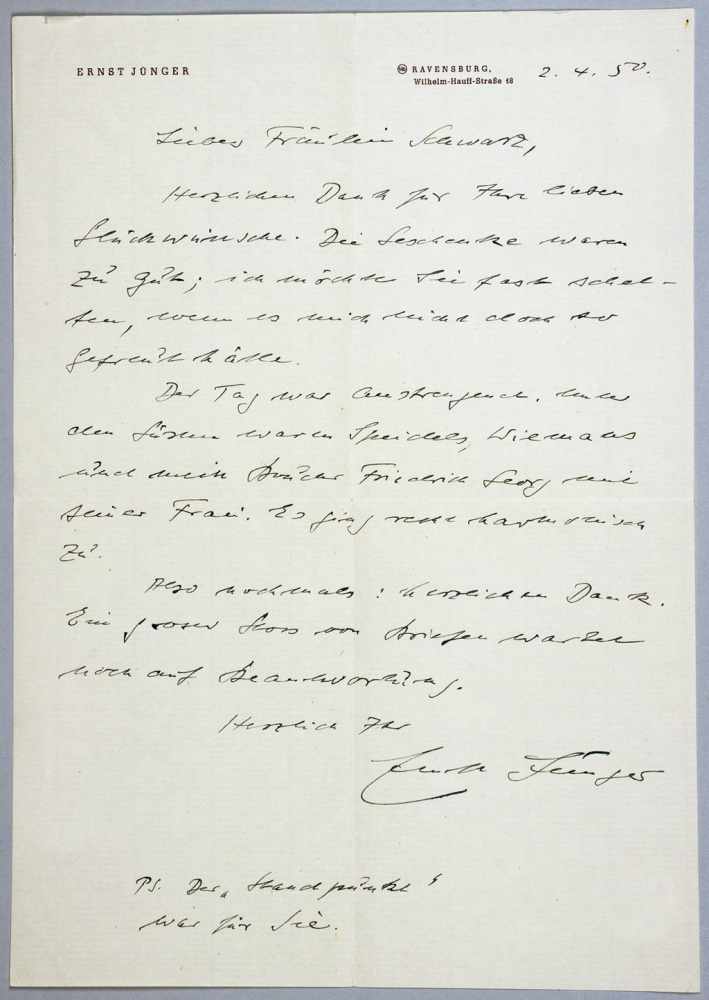 ERNST JÜNGER
(14b) RAVENSBURG,
Wilhelm-Hauff-Straße 18
2. 4. 50.
Liebes Fräulein Schwarz,
Herzlichen Dank für Ihre lieben
Glückwünsche. Die Geschenke waren
zu gut; ich möchte Sie fast schel-
ten, wenn es mich nicht doch so
gefreut hätte.
Der Tag war anstrengend. Unter
den Gästen waren Speidels, Wiemans
und mein Bruder Friedrich Georg mit
seiner Frau. Es ging recht harmonisch
zu.
Also nochmals: herzlichen Dank.
Ein großer Stoss von Briefen wartet
noch auf Beantwortung.
Herzlich Ihr
Ernst Jünger
PS. Der „Standpunkt"
war für Sie.